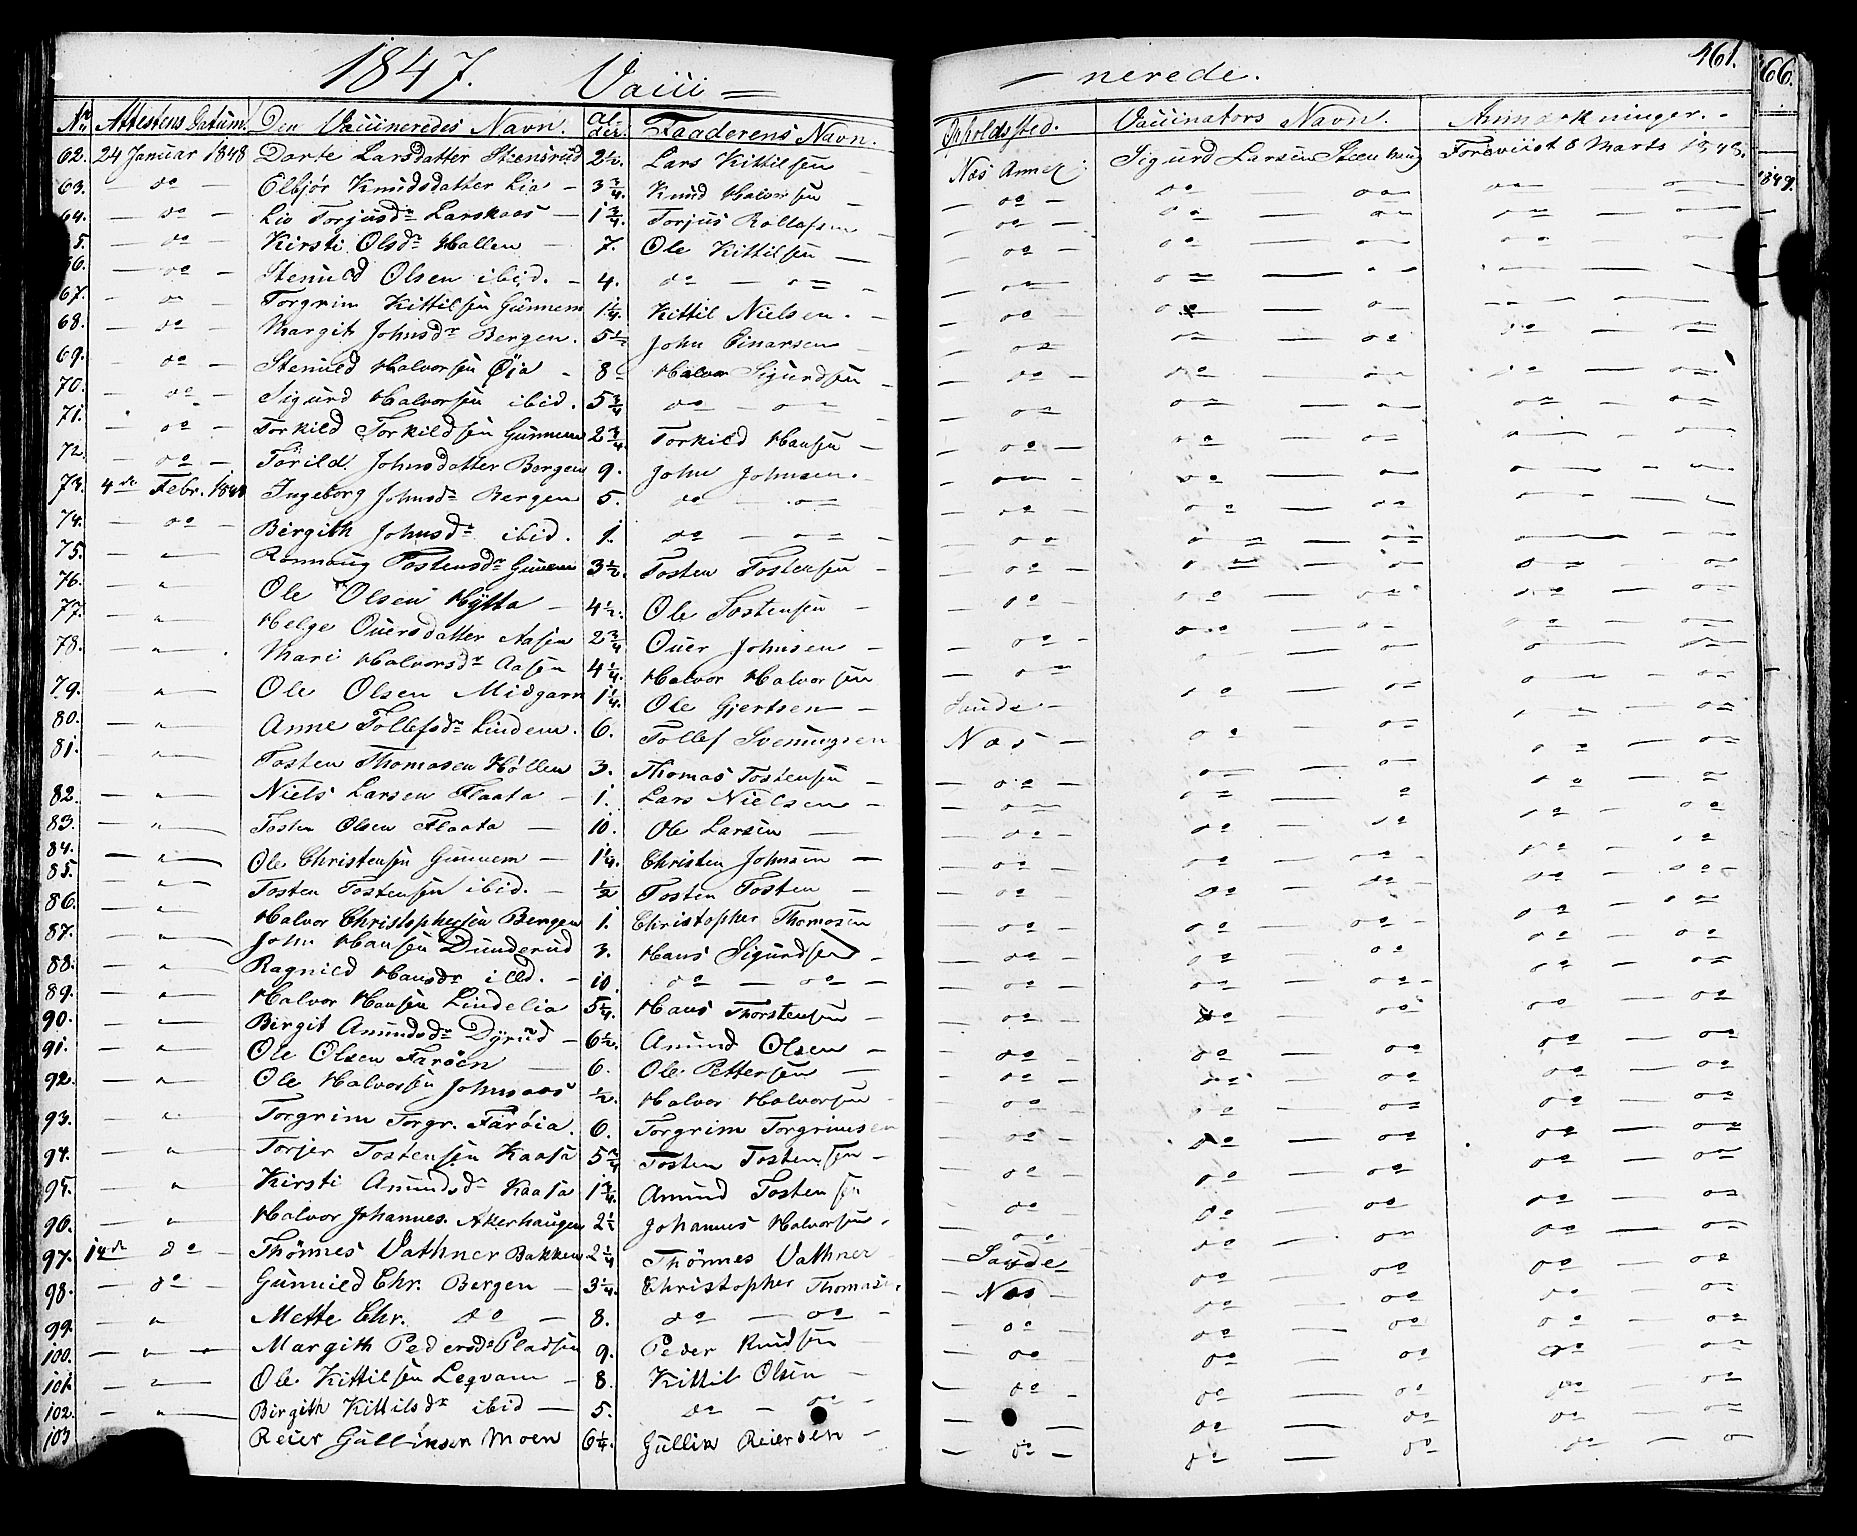 1847. Vacci = — nerede. 461. 466.
No. Attestens Datum. Den Vaccineredes Navn. Al- der. Faaderens Navn. Opholdssted. Vaccinators Navn. Anmærkninger.
62. 24 Januar 1848 Dorte Larsdatter Stensrud 2½. Lars Kittilsen Næs Annex: Sigurd Larsen Steenhaug Foreviist 8 Marts 1848.
63. — do — Olbjør Knudsdatter Lia — 3¾ Knud Halvorsen — do — do — do do — do 1849.
64. — do — Liv Torjusdr Larskaas — 1¾. Torjus Rollefsen — do — do — do do — do
65. — do — Kirsti Olsdr Hallen — 7. Ole Kittilsen — do — do — do do — do
66. — do — Stenuld Olsen ibid. — 4. do — do — do — do — do — do
67. — do — Torgrim Kittilsen Gunnem 1¼. Kittil Nielsen. — do — do — do do — do
68. — do — Margit Johnsdr Bergen. 5½ John Einarsen — do do — do do — do
69. — do — Stenuld Halvorsen Øia — 8 Halvor Sigurdsen — do — do — do do — do
70. — do — Sigurd Halvorsen ibid. 5¾ do — do — do do — do do — do
71. — do — Torkild Torkildsen Gunnem 2¾ Torkild Hansen — do — do — do do — do
72. — do — Torild Johnsdatter Bergen 9. John Johnsen. — do — do — do do — do
73. 4de Febr. 1848 Ingeborg Johnsdr Bergen 5. do — do — do do — do do — do
74. — do — Birgith Johnsdr ibid. 1. do — do — do do — do do — do
75. — " — Ronnaug Tostensdr Gunnem 3½. Tosten Tostensen — do — do — do do — do
76. — " — Ole Olsen Hÿtta — 4½. Ole Tostensen — do — do — do do — do
77. — " — Helge Ouersdatter Aasen 2¾ Ouer Johnsen — do — do — do do — do
78. — " — Mari Halvorsdr Aasen 4¼. Halvor Halvorsen — do do — do
79. " — Ole Olsen Midgarn 1¼. Ole Gjertsen — Saude — do — do do — do
80. — " — Anne Tollefsdr Linden. 6. Tollef Svenungsen Næs — do — do do — do
81. — " — Tosten Thomasen Høllen 3. Thomas Tostensen — do — do — do do — do
82. — " — Niels Larsen Flaata — 1. Lars Nielsen — do do — do do — do
83. — " — Tosten Olsen Flaata — 10. Ole Larsen — do — do — do do — do
84. — " — Ole Christensen Gunnem — 1¼. Christen Johnsen — do do — do — do — do
85. — " — Tosten Tostensen ibid. — ½ Tosten Tosten — do — do — do — do — do
86. — " — Halvor Christophersen Bergen 1. Christopher Thomasen — do — do — do — do — do
87. — " — John Hansen Dunderud 3. Hans Sigurdsen — do — do — do do — do
88. — " — Ragnild Hansdr ibid. — 10. do — do — do — do — do — do — do
89. — " — Halvor Hansen Lindelia 5¼. Hans Thorstensen — do — do — do do — do
90. — " — Birgit Amundsdr Dÿrud — 6½. Amund Olsen — do — do — do do — do
91. — " — Ole Olsen Farøen — 6. Ole Pettersen — do — do — do do — do
92. — " — Ole Halvorsen Johnsaas ½. Halvor Halvorsen — do do — do do — do
93. — " — Torgrim Torgr. Farøia. 6. Torgrim Torgrimsen — do — do — do do — do
94. — " — Torjer Tostensen Kaasa 5¾ Tosten Tostensen — do — do — do do — do
95. — " — Kirsti Amundsdr Kaasa 1¾. Amund Tostensen do do — do do — do
96. — " — Halvor Johannes. Akerhaugen 2½ Johannes Halvorsen. do do — do do — do
97. 14de do — Thønnes Vathner Bakken 2¼ Thønnes Vathner — Saude do — do do — do
98. — do — Gunnild Chr. Bergen — 3¼. Christopher Thomasen — Næs — do — do do — do
99. — " — Mette Chr. do — 8. do — do — — do — do — do do — do
100. — " — Margith Pedersdr Pladsen 9. Peder Knudsen — do — do — do do — do
101. — " — Ole Kittilsen Legvam — 8. Kittil Olsen — do — do — do do — do
102. — " — Birgith Kittilsdr ibid — 5. do — do — do — do do — do
103 Reier Gullinsen Moen 6¼. Gullik Reiersen — — do — do — do do — do